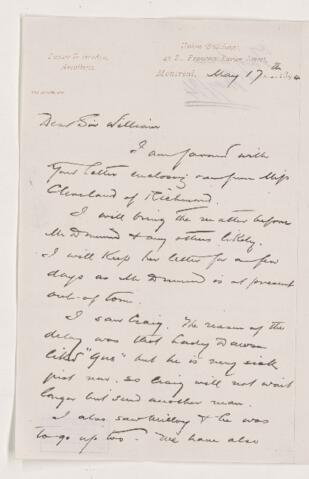 Union Buildings,
Montreal, May 17th
Dear Sir William
I am favored with
Your letter enclosing one from Miss
Cleveland of Richmond.
I will bring the matter before
Mr Drummond & any others likely.
I will keep her letter for a few
days as Mr Drummond is at present
out of town.
I saw Craig. The reason of the
delay was that Lady Dawson
liked "Gus" but he is very sick
just now, so Craig will not wait
longer but send another man.
I also saw Milloy & he was
to go up too. We have also